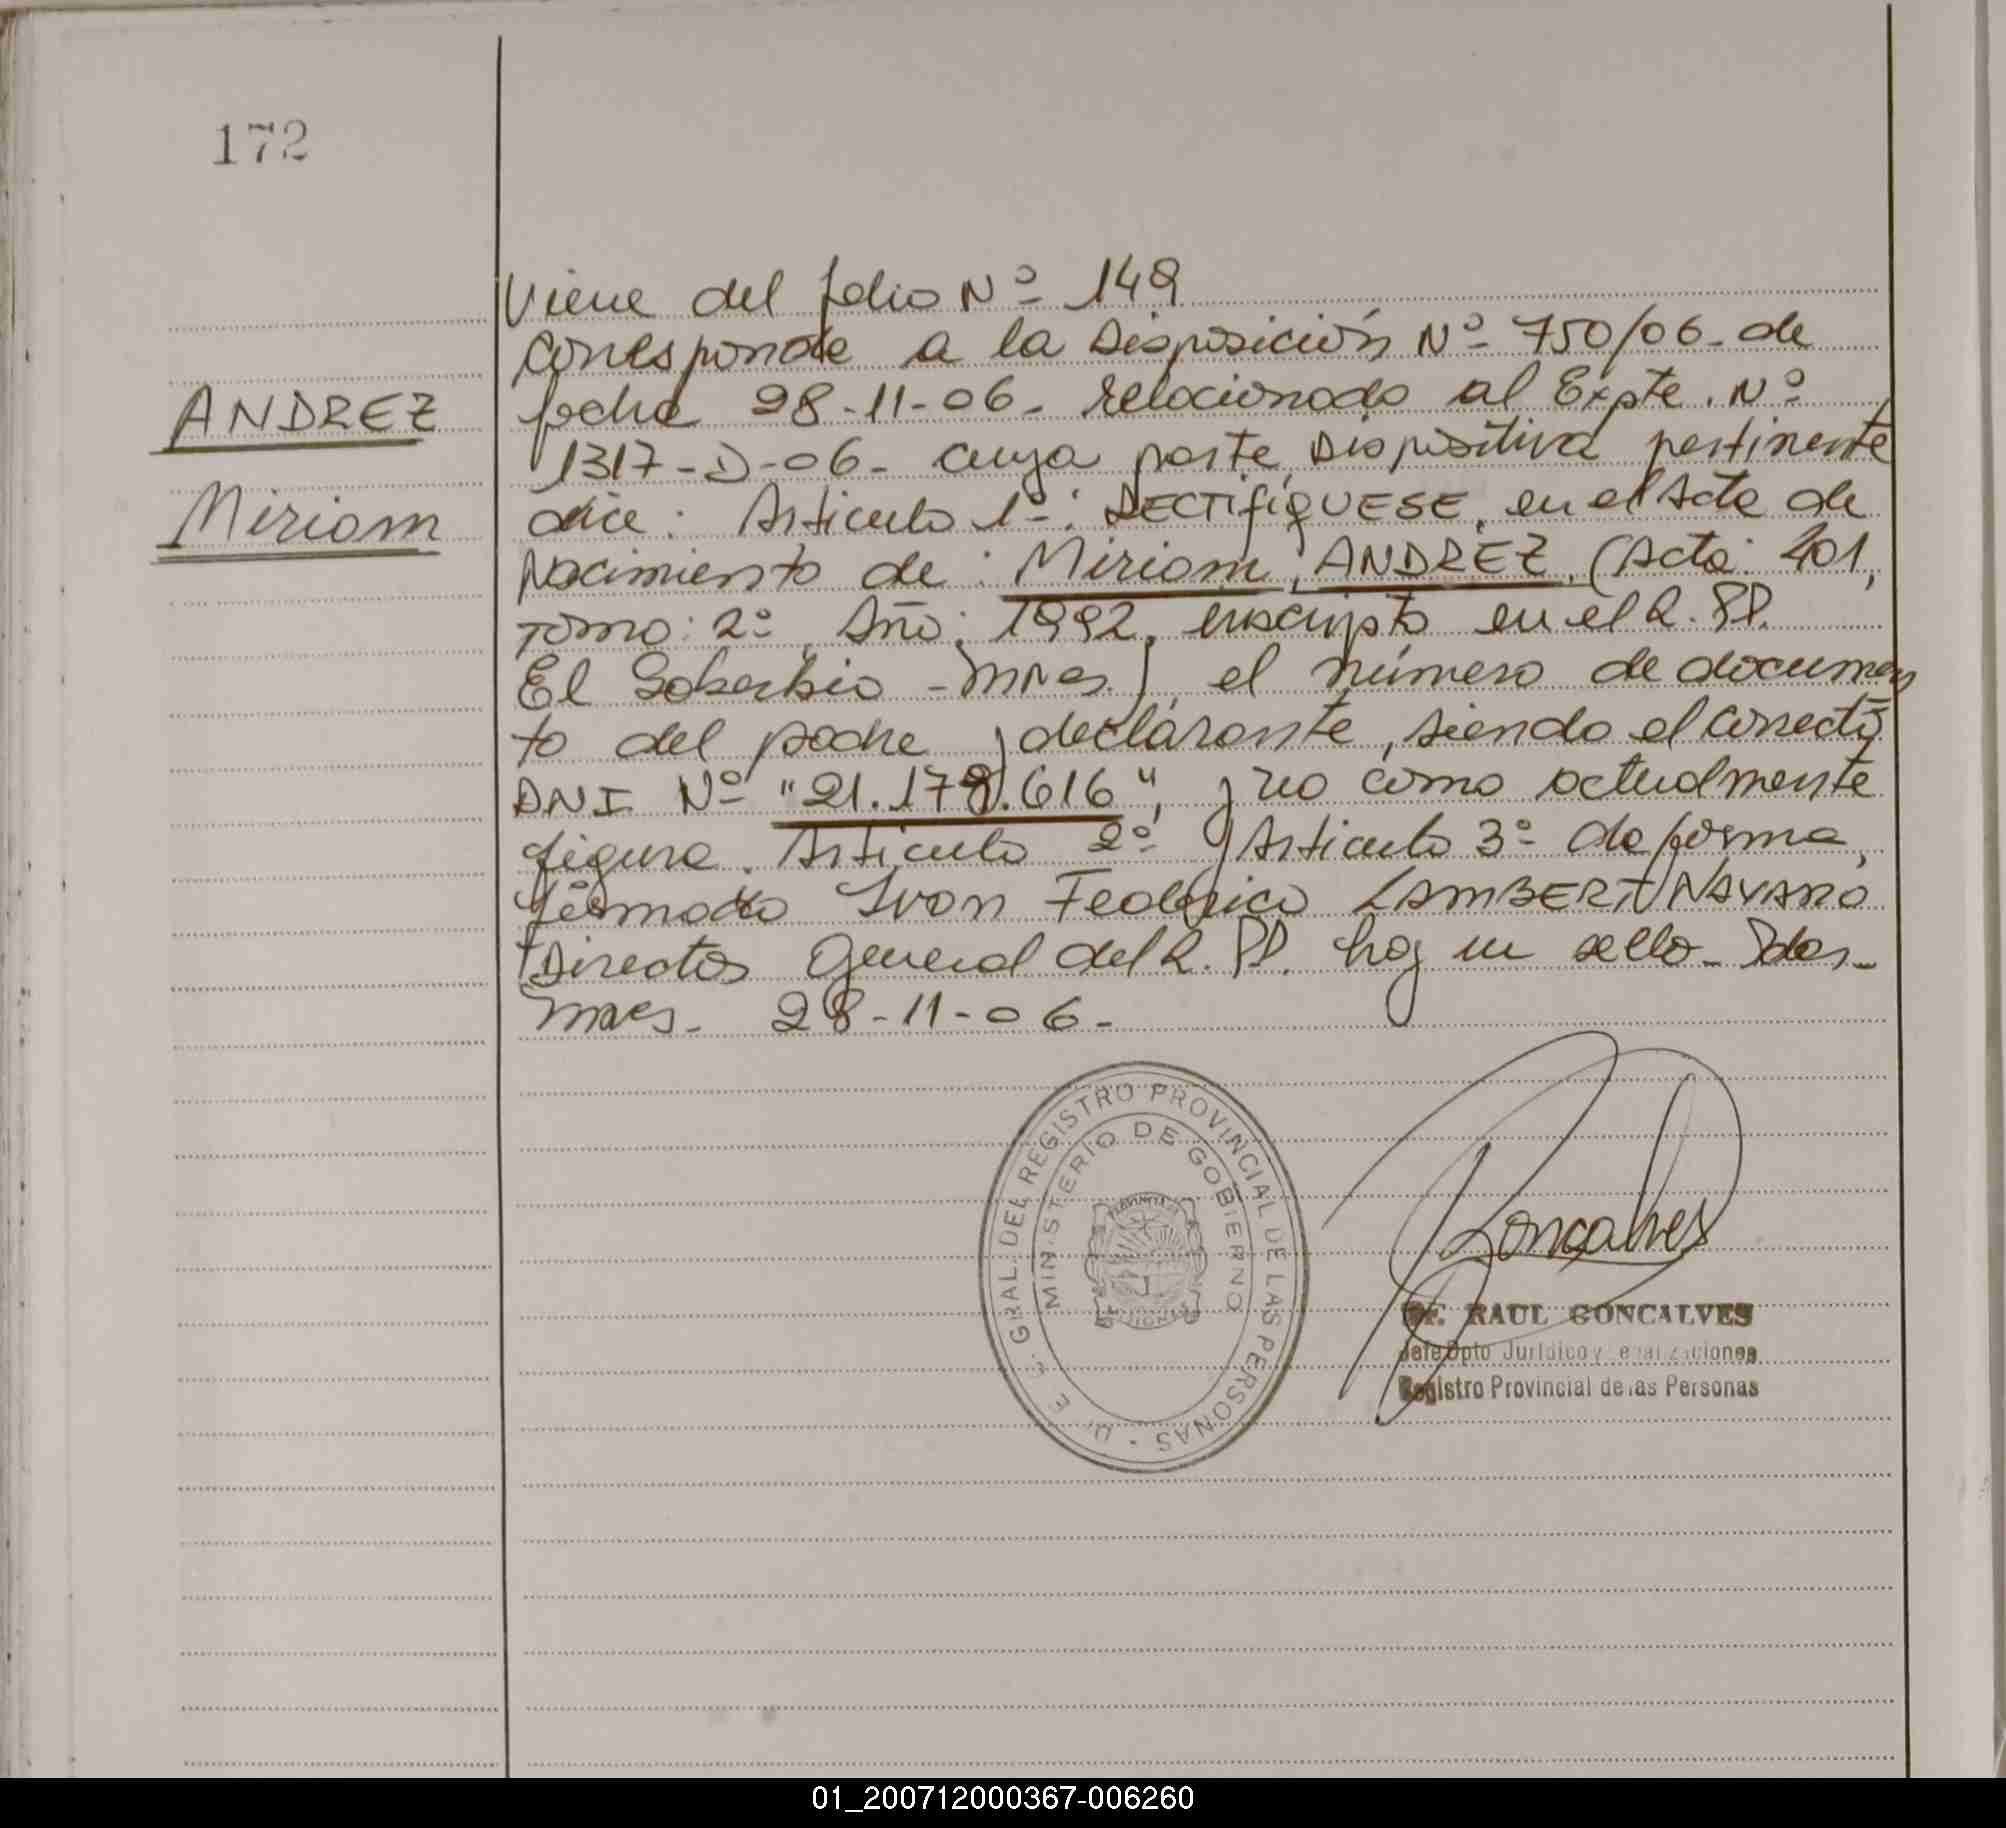 172
ANDREZ
Miriam
Viene del folio Nº 149
Corresponde a la Disposición Nº 750/06- de
fecha 28-11-06- relacionado al Expte. Nº
1317-D-06- cuya parte Dispositiva pertinente
dice: Articulo 1º: RECTifiQUESE, en el Acta de
Nacimiento de: Miriam, ANDREZ, (Acta: 401,
Tomo: 2º, Año: 1992, inscripta en el R.PP.
El Soberbio - Mnes.), el número de documen
to del padre y declarante, siendo el correcto
DNI Nº "21.178.616", y no como actualmente
figura. Articulo 2º y Articulo 3º de forma,
firmado Ivan Federico LAMBERT NAVARO
Director General del R.PP. hay un sello- Pdas-
Mnes- 28-11-06-
GRAL. DEL REGISTRO PROVINCIAL DE LAS PERSONAS
MINISTERIO DE GOBIERNO
Goncalves
Dr. RAUL GONCALVES
Jefe Dpto Jurídico y Legalizaciones
Registro Provincial de las Personas
01_200712000367-006260